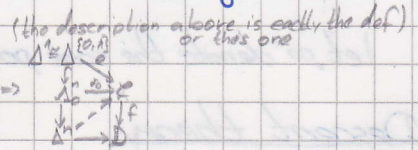 (the description above is exactly the def)
or this one
Δ¹ ≅ Δ^{0,n}
e
=> Δ₀ⁿ x₀ e
f
Δⁿ D